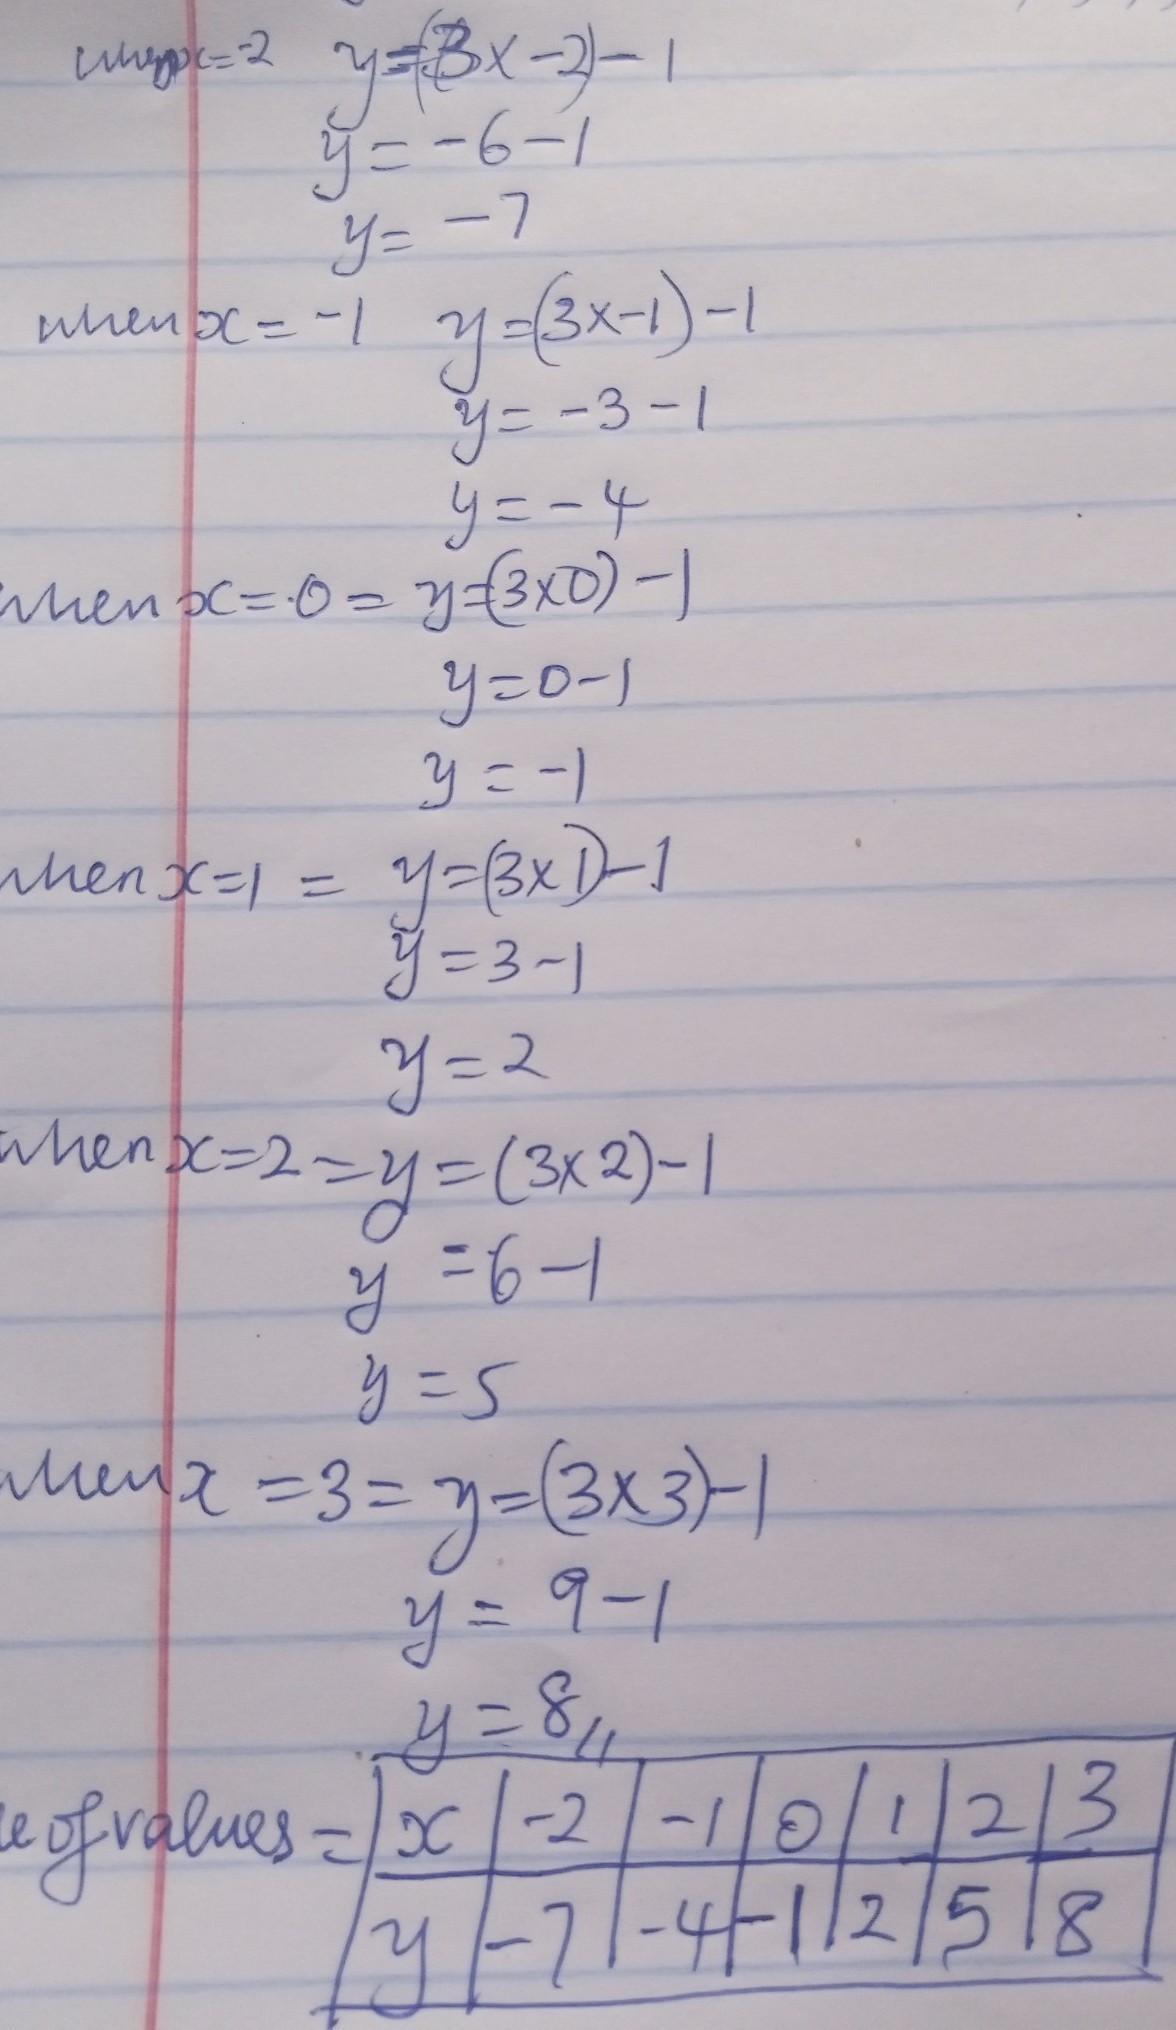 when x=-2 y=(3x-2)-1
y=-6-1
y=-7
when x=-1 y=(3x-1)-1
y=-3-1
y=-4
when x=0= y=(3x0)-1
y=0-1
y=-1
when x=1= y=(3x1)-1
y=3-1
y=2
when x=2=y=(3x2)-1
y=6-1
y=5
when x=3=y=(3x3)-1
y=9-1
y=8,,
le of values=|x|-2|-1|0|1|2|3
|y|-7|-4|-1|2|5|8